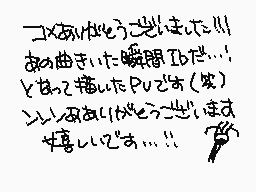 コメありがとうございました!!!
あの曲きいた瞬間Ibだ…!
となって描いたPVです(笑)
ありがとうございます
嬉しいです…!!